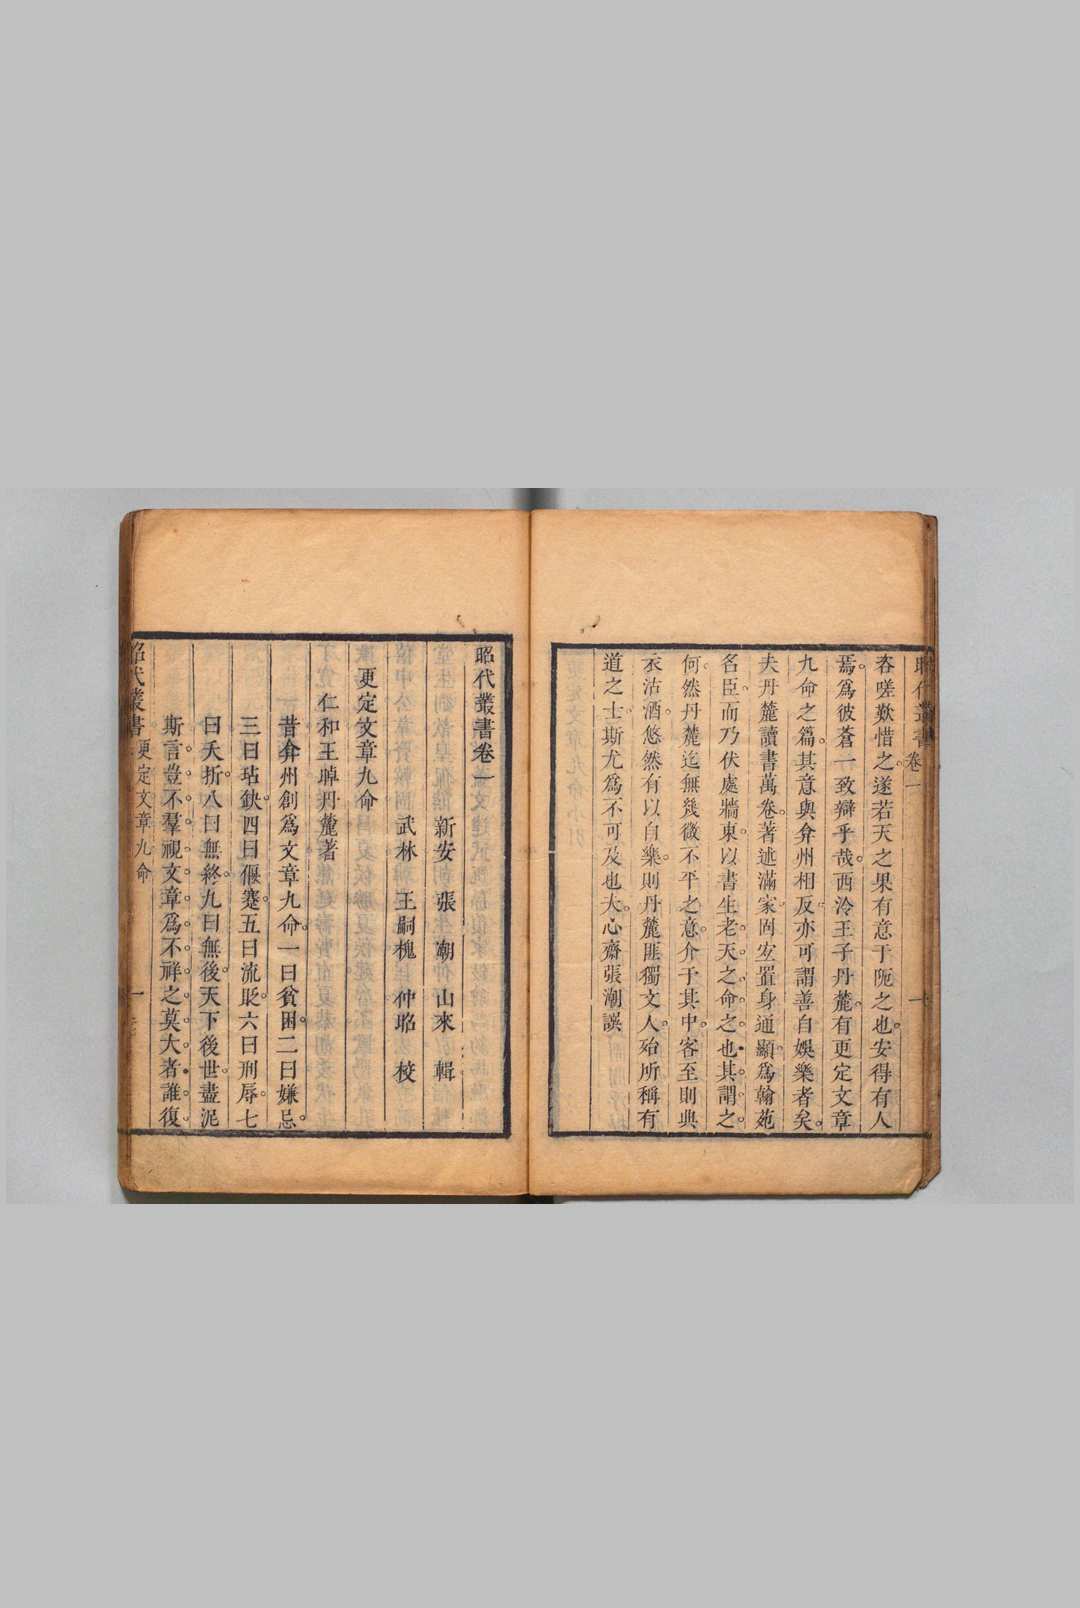 昭代叢書 卷一 一
吝嗟歎惜之遂若天之果有意于阨之也安得有人
焉爲彼蒼一致辯乎哉西泠王子丹麓有更定文章
九命之篇其意與弇州相反亦可謂善自娛樂者矣
夫丹麓讀書萬卷著述滿家固宜置身通顯爲翰苑
名臣而乃伏處牆東以書生老天之命之也其謂之
何然丹麓迄無幾微不平之意介于其中客至則典
衣沽酒悠然有以自樂則丹麓匪獨文人殆所稱有
道之士斯尤爲不可及也大心齋張潮譔
昭代叢書卷一
新安 張 潮 山來 輯
武林 王嗣槐 仲昭 校
更定文章九命
仁和王晫丹麓著
昔弇州創爲文章九命一曰貧困二曰嫌忌
三曰玷缺四曰偃蹇五曰流貶六曰刑辱七
曰夭折八曰無終九曰無後天下後世盡泥
斯言豈不羣視文章爲不祥之莫大者誰復
昭代叢書 更定文章九命 一